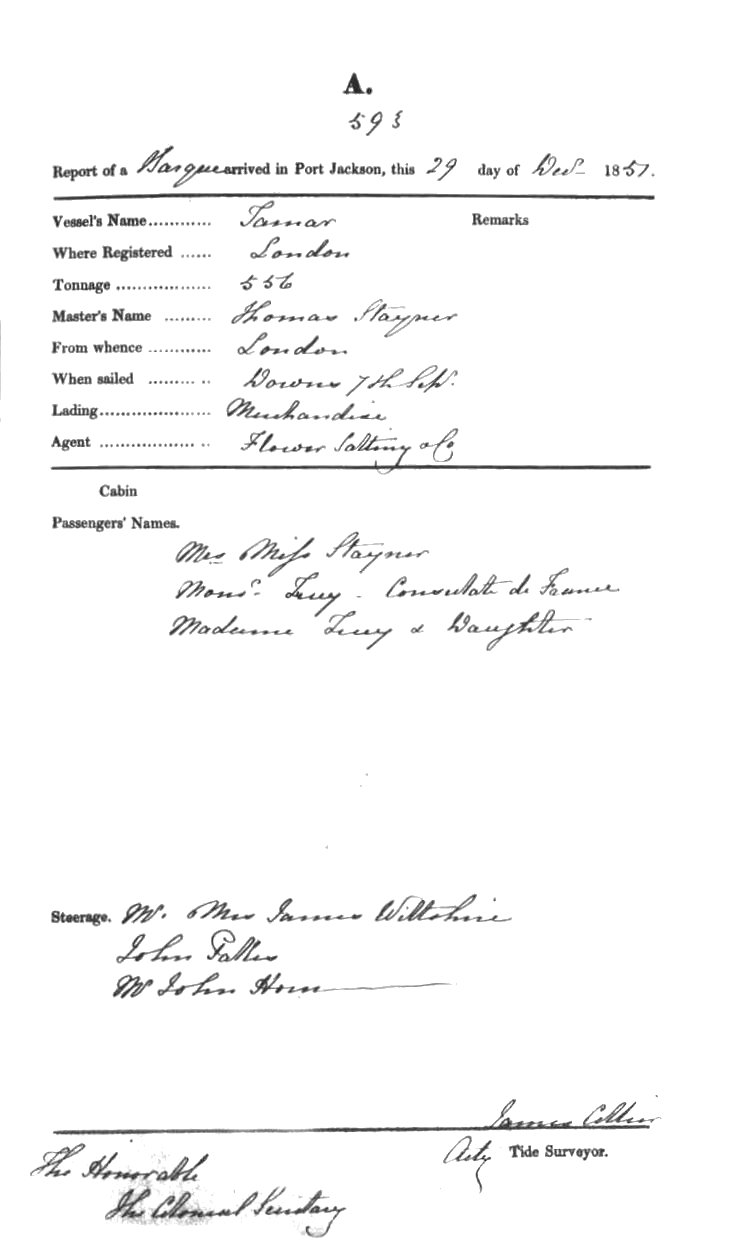 A.
593
Report of a Barque arrived in Port Jackson, this 29 day of Decr 1851.
Vessel's Name............ Tamar Remarks
Where Registered ...... London
Tonnage .................. 556
Master's Name ......... Thomas Stayner
From whence ............ London
When sailed ......... .. Downs 7th Sep.
Lading..................... Merchandise
Agent ................... .. Flower Salting & Co
Cabin
Passengers' Names.
Mrs Miss Stayner
Monsr. - Consulate de France
Madame & Daughter
Steerage. Mr. Mrs James Wiltshire
John
Mr John Horn
James Collier
Actg Tide Surveyor.
The Honorable
The Colonial Secretary